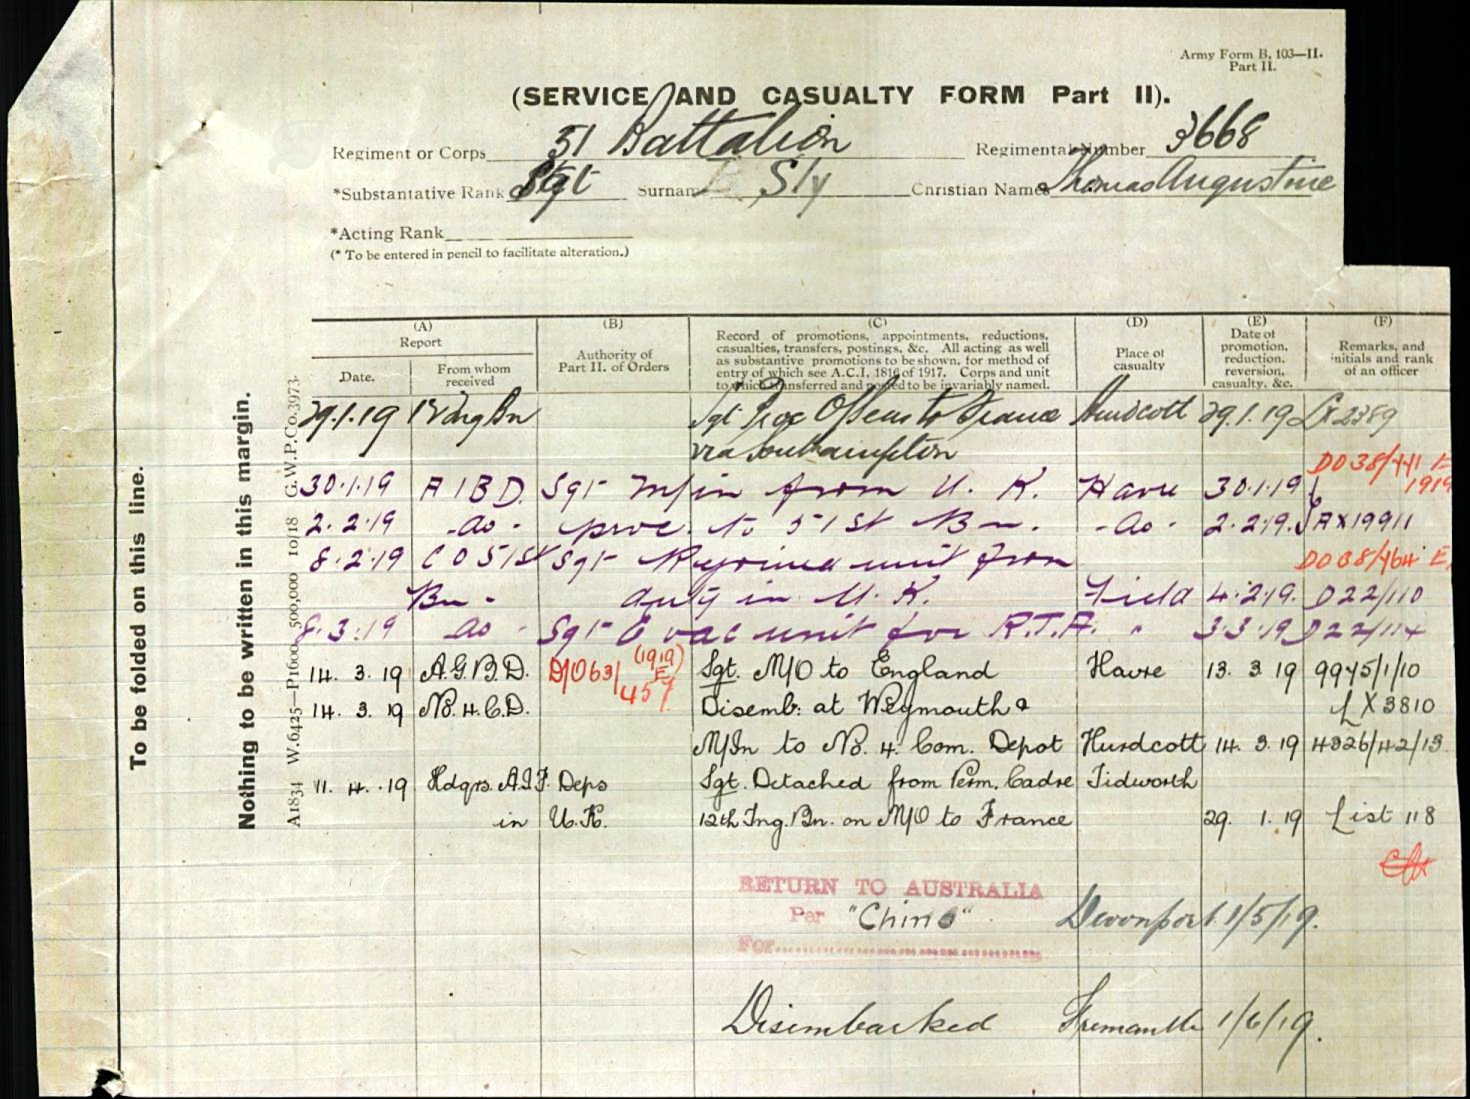 Army Form B. 103—II.
Part II.
(SERVICE AND CASUALTY FORM Part II).
Regiment or Corps 51 Battalion Regimental Number 3668
*Substantative Rank Sgt Surname Sly Christian Names Thomas Augustine
*Acting Rank
(* To be entered in pencil to facilitate alteration.)
To be folded on this line.
Nothing to be written in this margin.
A1834 W.6425—P1600 500,000 10/18 G.W.P.Co.3973.
(A) (B) (C) (D) (E) (F)
Report
Date. From whom received
Authority of Part II. of Orders
Record of promotions, appointments, reductions,
casualties, transfers, postings, &c. All acting as well
as substantive promotions to be shown, for method of
entry of which see A.C.I. 1816 of 1917. Corps and unit
to which transferred and posted to be invariably named.
Place of casualty
Date of promotion, reduction, reversion, casualty, &c.
Remarks, and initials and rank of an officer
29.1.19 12 Tng Bn Sgt Proc O/Seas to France Hurdcott 29.1.19 LX2389
via Southampton
DO38/441 E
1919
30.1.19 A I B D. Sgt M/in from U. K. Havre 30.1.19
2.2.19 -do- proc. to 51st Bn. -do- 2.2.19. AX19911
DO38/464 E.
8.2.19 C O 51st Sgt Rejoined unit from
Bn - duty in U. K. Field 4.2.19. D22/110
8.3.19 do - Sgt Evac unit for R.T.A. " 3.3.19 D22/114
14. 3. 19 A.G.B.D. D/O63/457 (1919) E Sgt. M/O to England Havre 13. 3 19 9945/1/10
14. 3. 19 No. 4. C.D. Disemb: at Weymouth & LX3810
M/In to No. 4. Com. Depot Hurdcott 14. 3. 19 4326/42/13
11. 4. 19 Hdqrs. A.I.F. Deps Sgt. Detached from Perm. Cadre Tidworth
in U.K. 12th Tng. Bn. on M/O to France 29. 1. 19 List 118
RETURN TO AUSTRALIA
Per "China" Devonport 1/5/19.
For
Disembarked Fremantle 1/6/19.